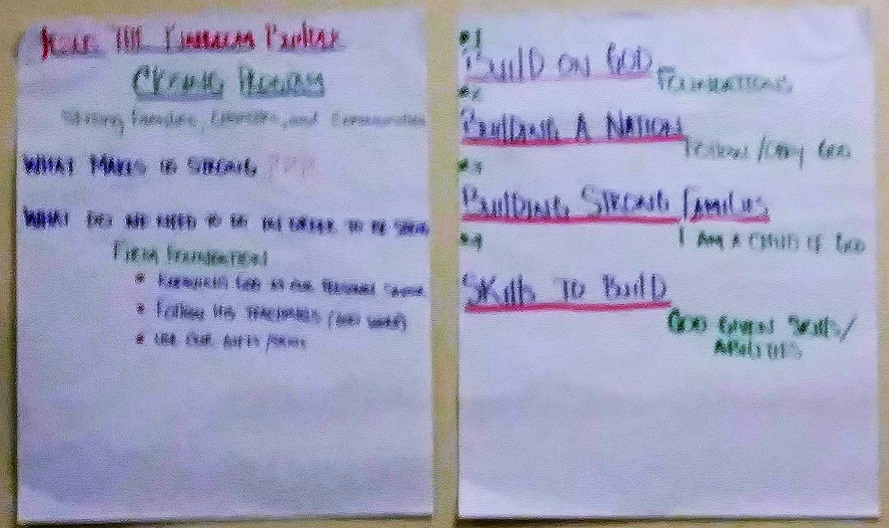 PROGRAM
Strong Families, Churches, and Communities
WHAT MAKES US STRONG ???
WHAT DO WE NEED TO DO IN ORDER TO BE STRONG
FIRM FOUNDATION
GOD AS OUR PERSONAL SAVIOR
FOLLOW HIS TEACHINGS (GOD WORD)
USE OUR GIFTS /
#1
BUILD ON GOD
FOUNDATIONS
#2
BUILDING A NATION
FOLLOW / OBEY GOD
#3
BUILDING STRONG FAMILIES
I AM A CHILD OF GOD
#4
SKILLS TO BUILD
GOD GIVEN SKILLS/
ABILITIES